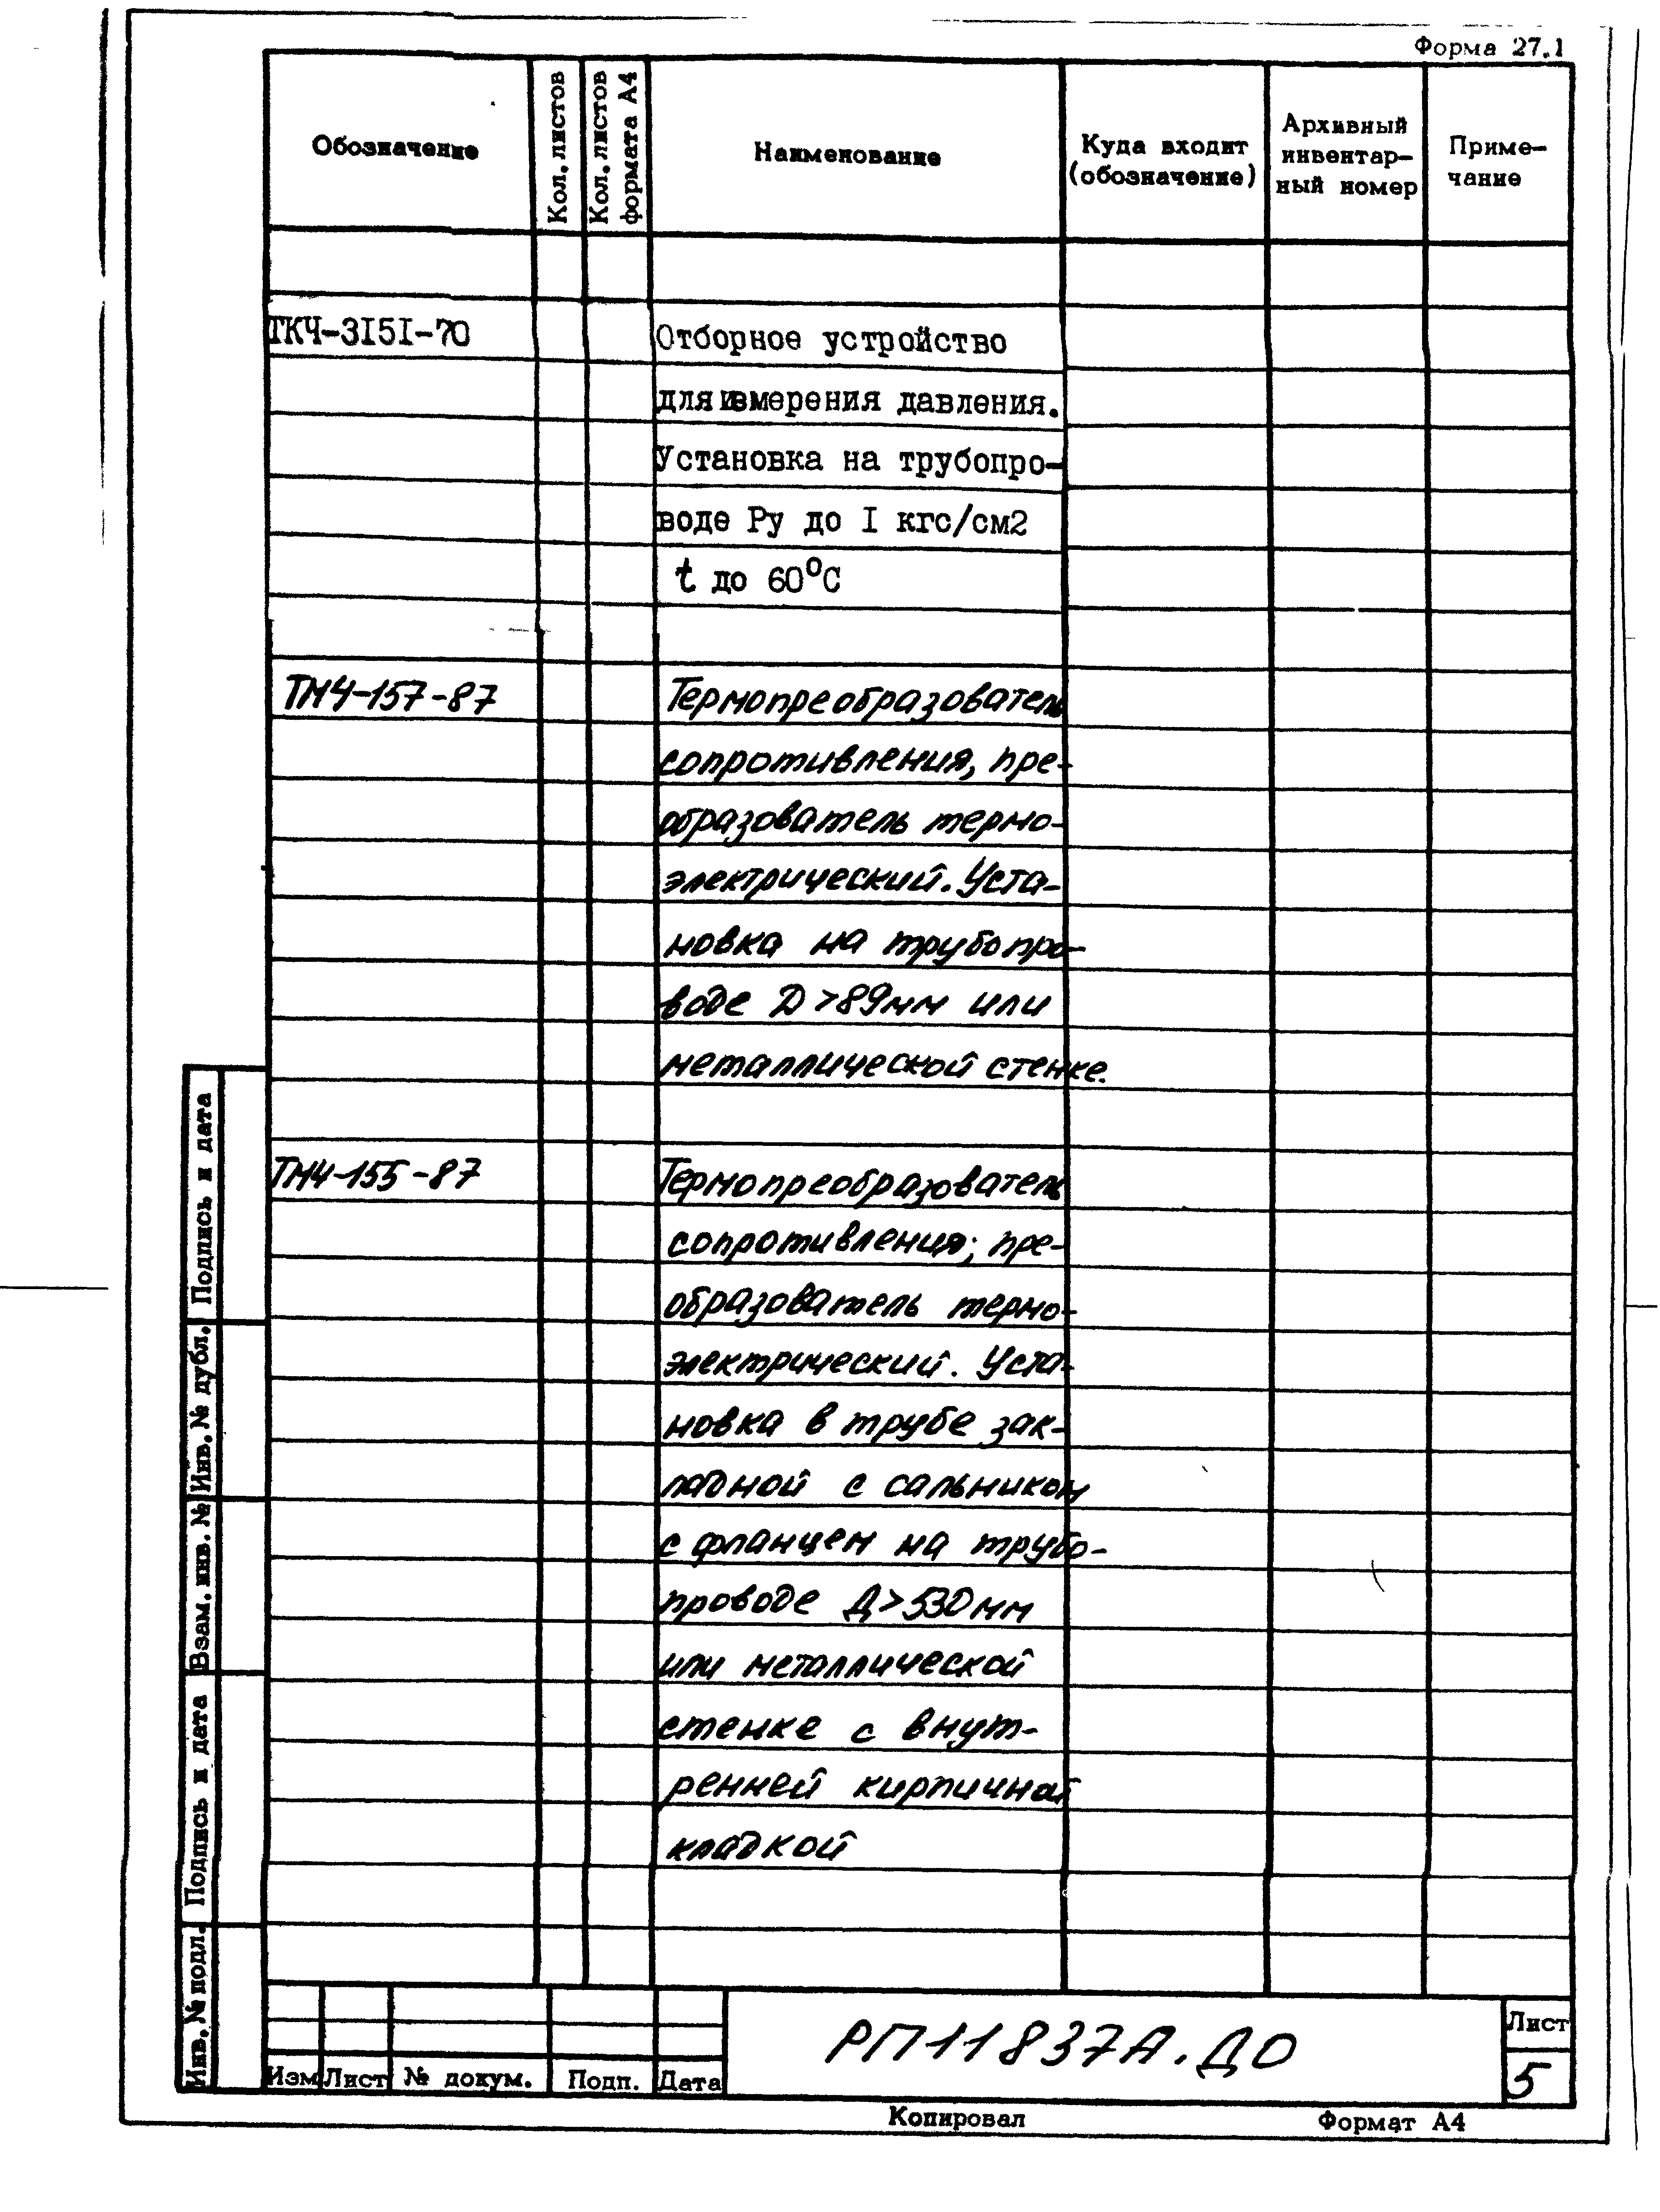 Форма 27.1
Обозначение
Кол. листов
Кол. листов
формата А4
Наименование
Куда входит
(обозначение)
Архивный
инвентар-
ный номер
Приме-
чание
ТКЧ-3I5I-70
Отборное устройство
для измерения давления.
Установка на трубопро-
воде Ру до I кгс/см2
t до 60°С
ТМ4-157-87
Термопреобразователь
сопротивления, пре-
образователь термо-
электрический. Уста-
новка на трубопро-
воде Д>89мм или
металлической стенке.
ТМ4-155-87
Термопреобразователь
сопротивления; пре-
образователь термо-
электрический. Уста-
новка в трубе зак-
ладной с сальником
с фланцем на трубо-
проводе Д>530мм
или металлической
стенке с внут-
ренней кирпичной
кладкой
Подпись и дата
Инв. № дубл.
Взам. инв. №
Подпись и дата
Инв. № подл.
Изм
Лист
№ докум.
Подп.
Дата
РП11837А.ДО
Лист
5
Копировал
Формат А4